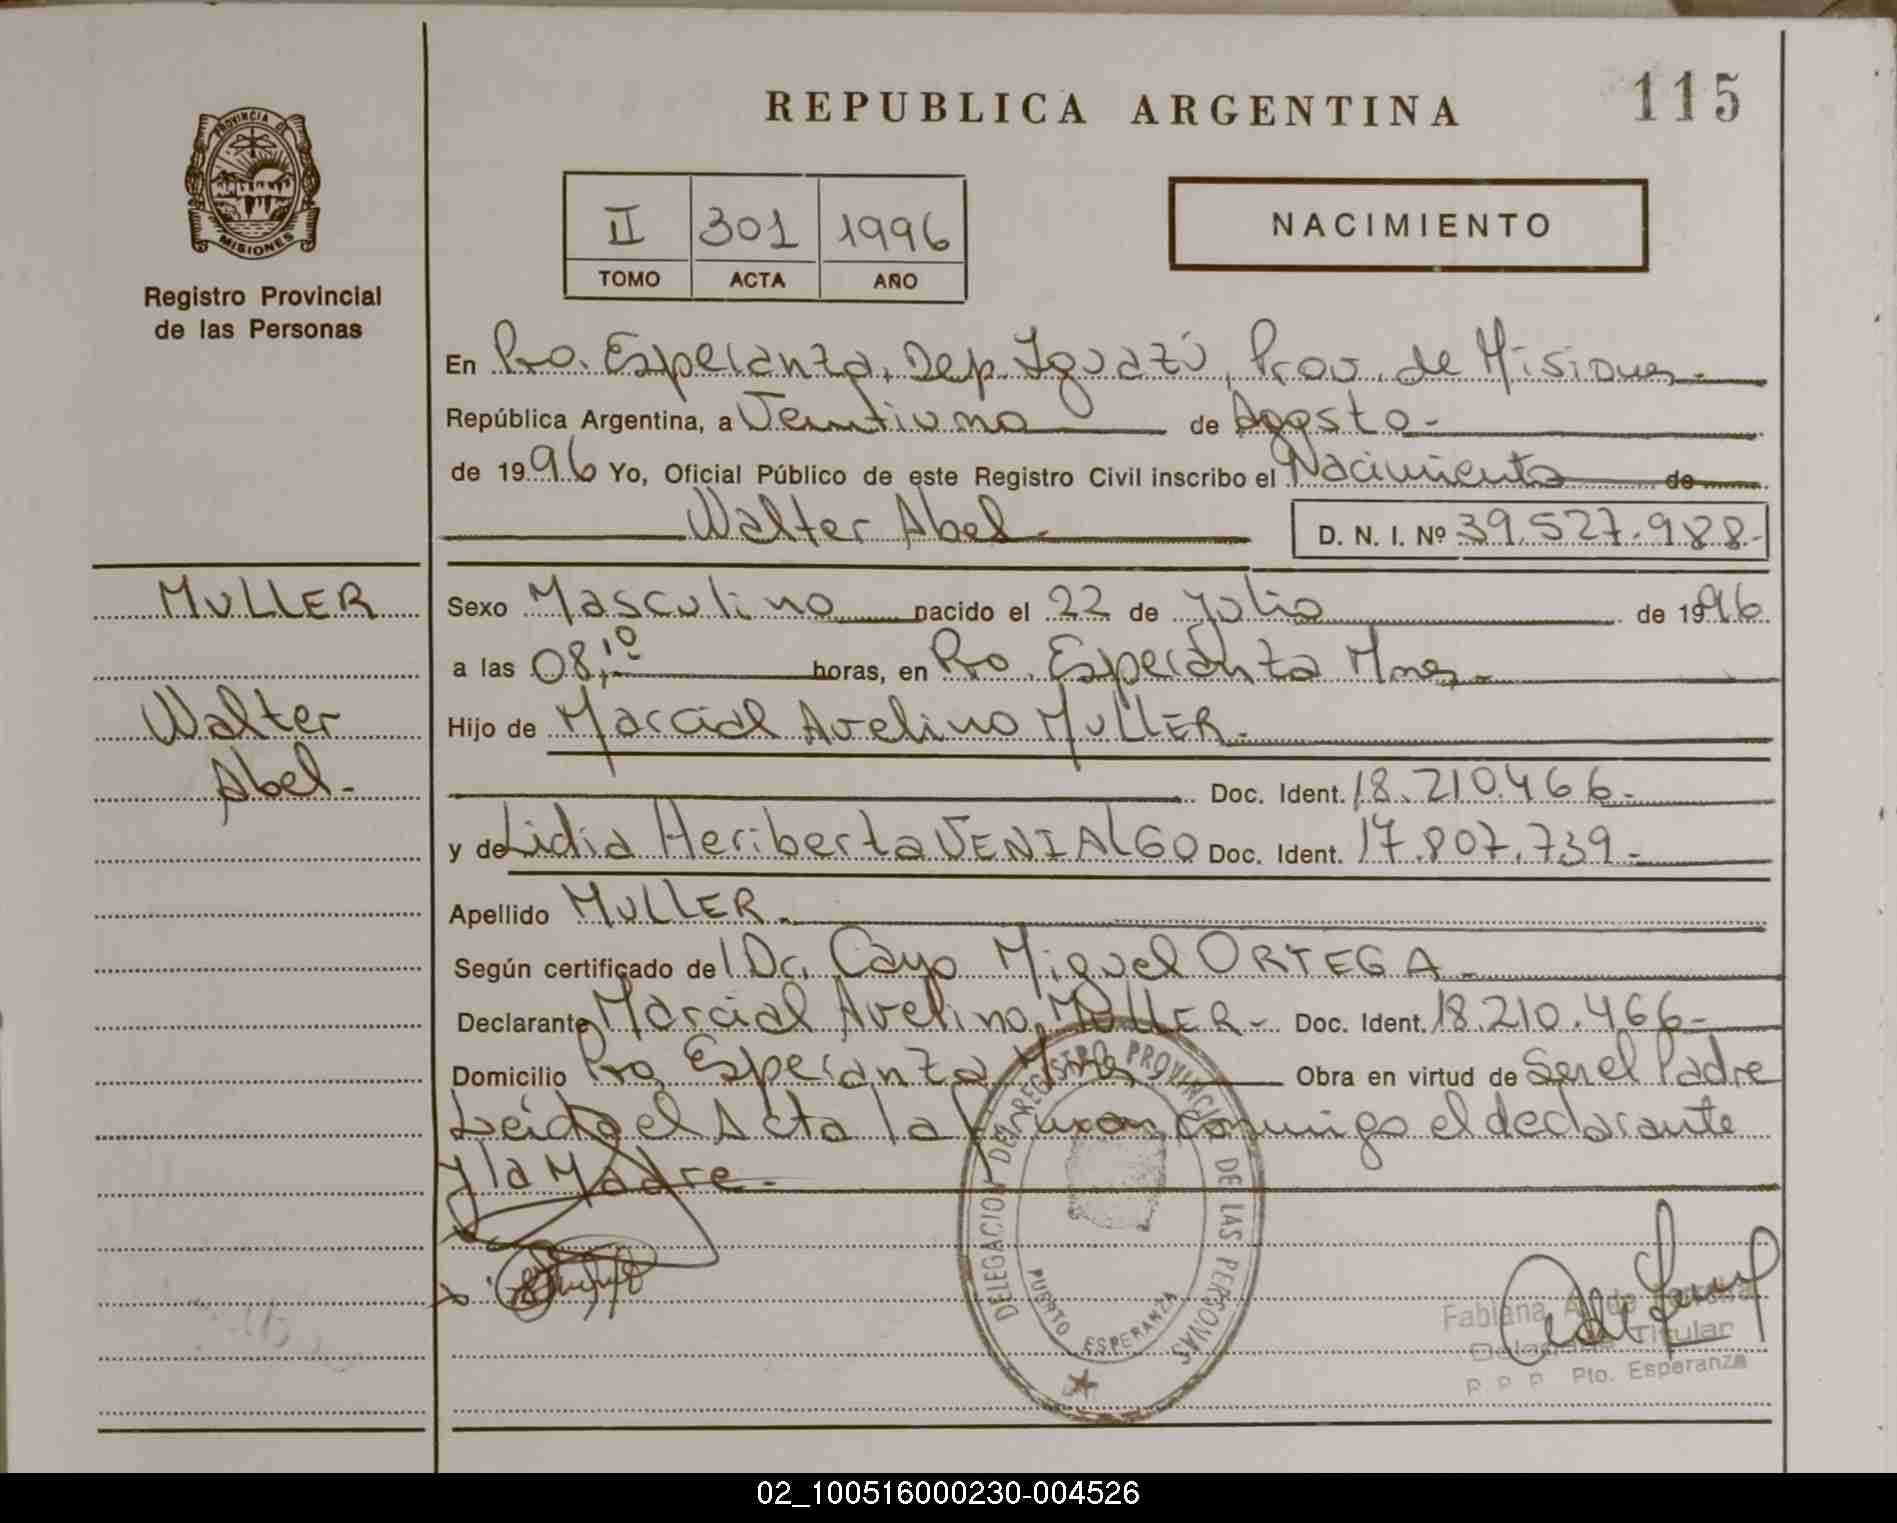 REPUBLICA ARGENTINA
115
PROVINCIA DE
MISIONES
Registro Provincial
de las Personas
II 301 1996
TOMO ACTA AÑO
NACIMIENTO
En Pto. Esperanza, Dep. Iguazú, Prov. de Misiones.-
República Argentina, a Veintiuno de Agosto.-
de 1996 Yo, Oficial Público de este Registro Civil inscribo el Nacimiento de
Walter Abel.- D. N. I. Nº 39.527.988.-
MULLER
Walter
Abel.-
Sexo Masculino nacido el 22 de Julio de 1996
a las 08,10 horas, en Pto. Esperanza Mnes.-
Hijo de Marcial Avelino MULLER.-
Doc. Ident. 18.210.466.-
y de Lidia Heriberta VENIALGO Doc. Ident. 17.807.739.-
Apellido MULLER.-
Según certificado del Dr. Cayo Miguel ORTEGA.-
Declarante Marcial Avelino MULLER.- Doc. Ident. 18.210.466-
Domicilio Pto. Esperanza Mnes Obra en virtud de Ser el Padre
Leída el Acta la firman conmigo el declarante
y la Madre.-
DELEGACION DEL REGISTRO PROVINCIAL DE LAS PERSONAS
PUERTO ESPERANZA
Fabiana
Titular
Pto. Esperanza
02_100516000230-004526